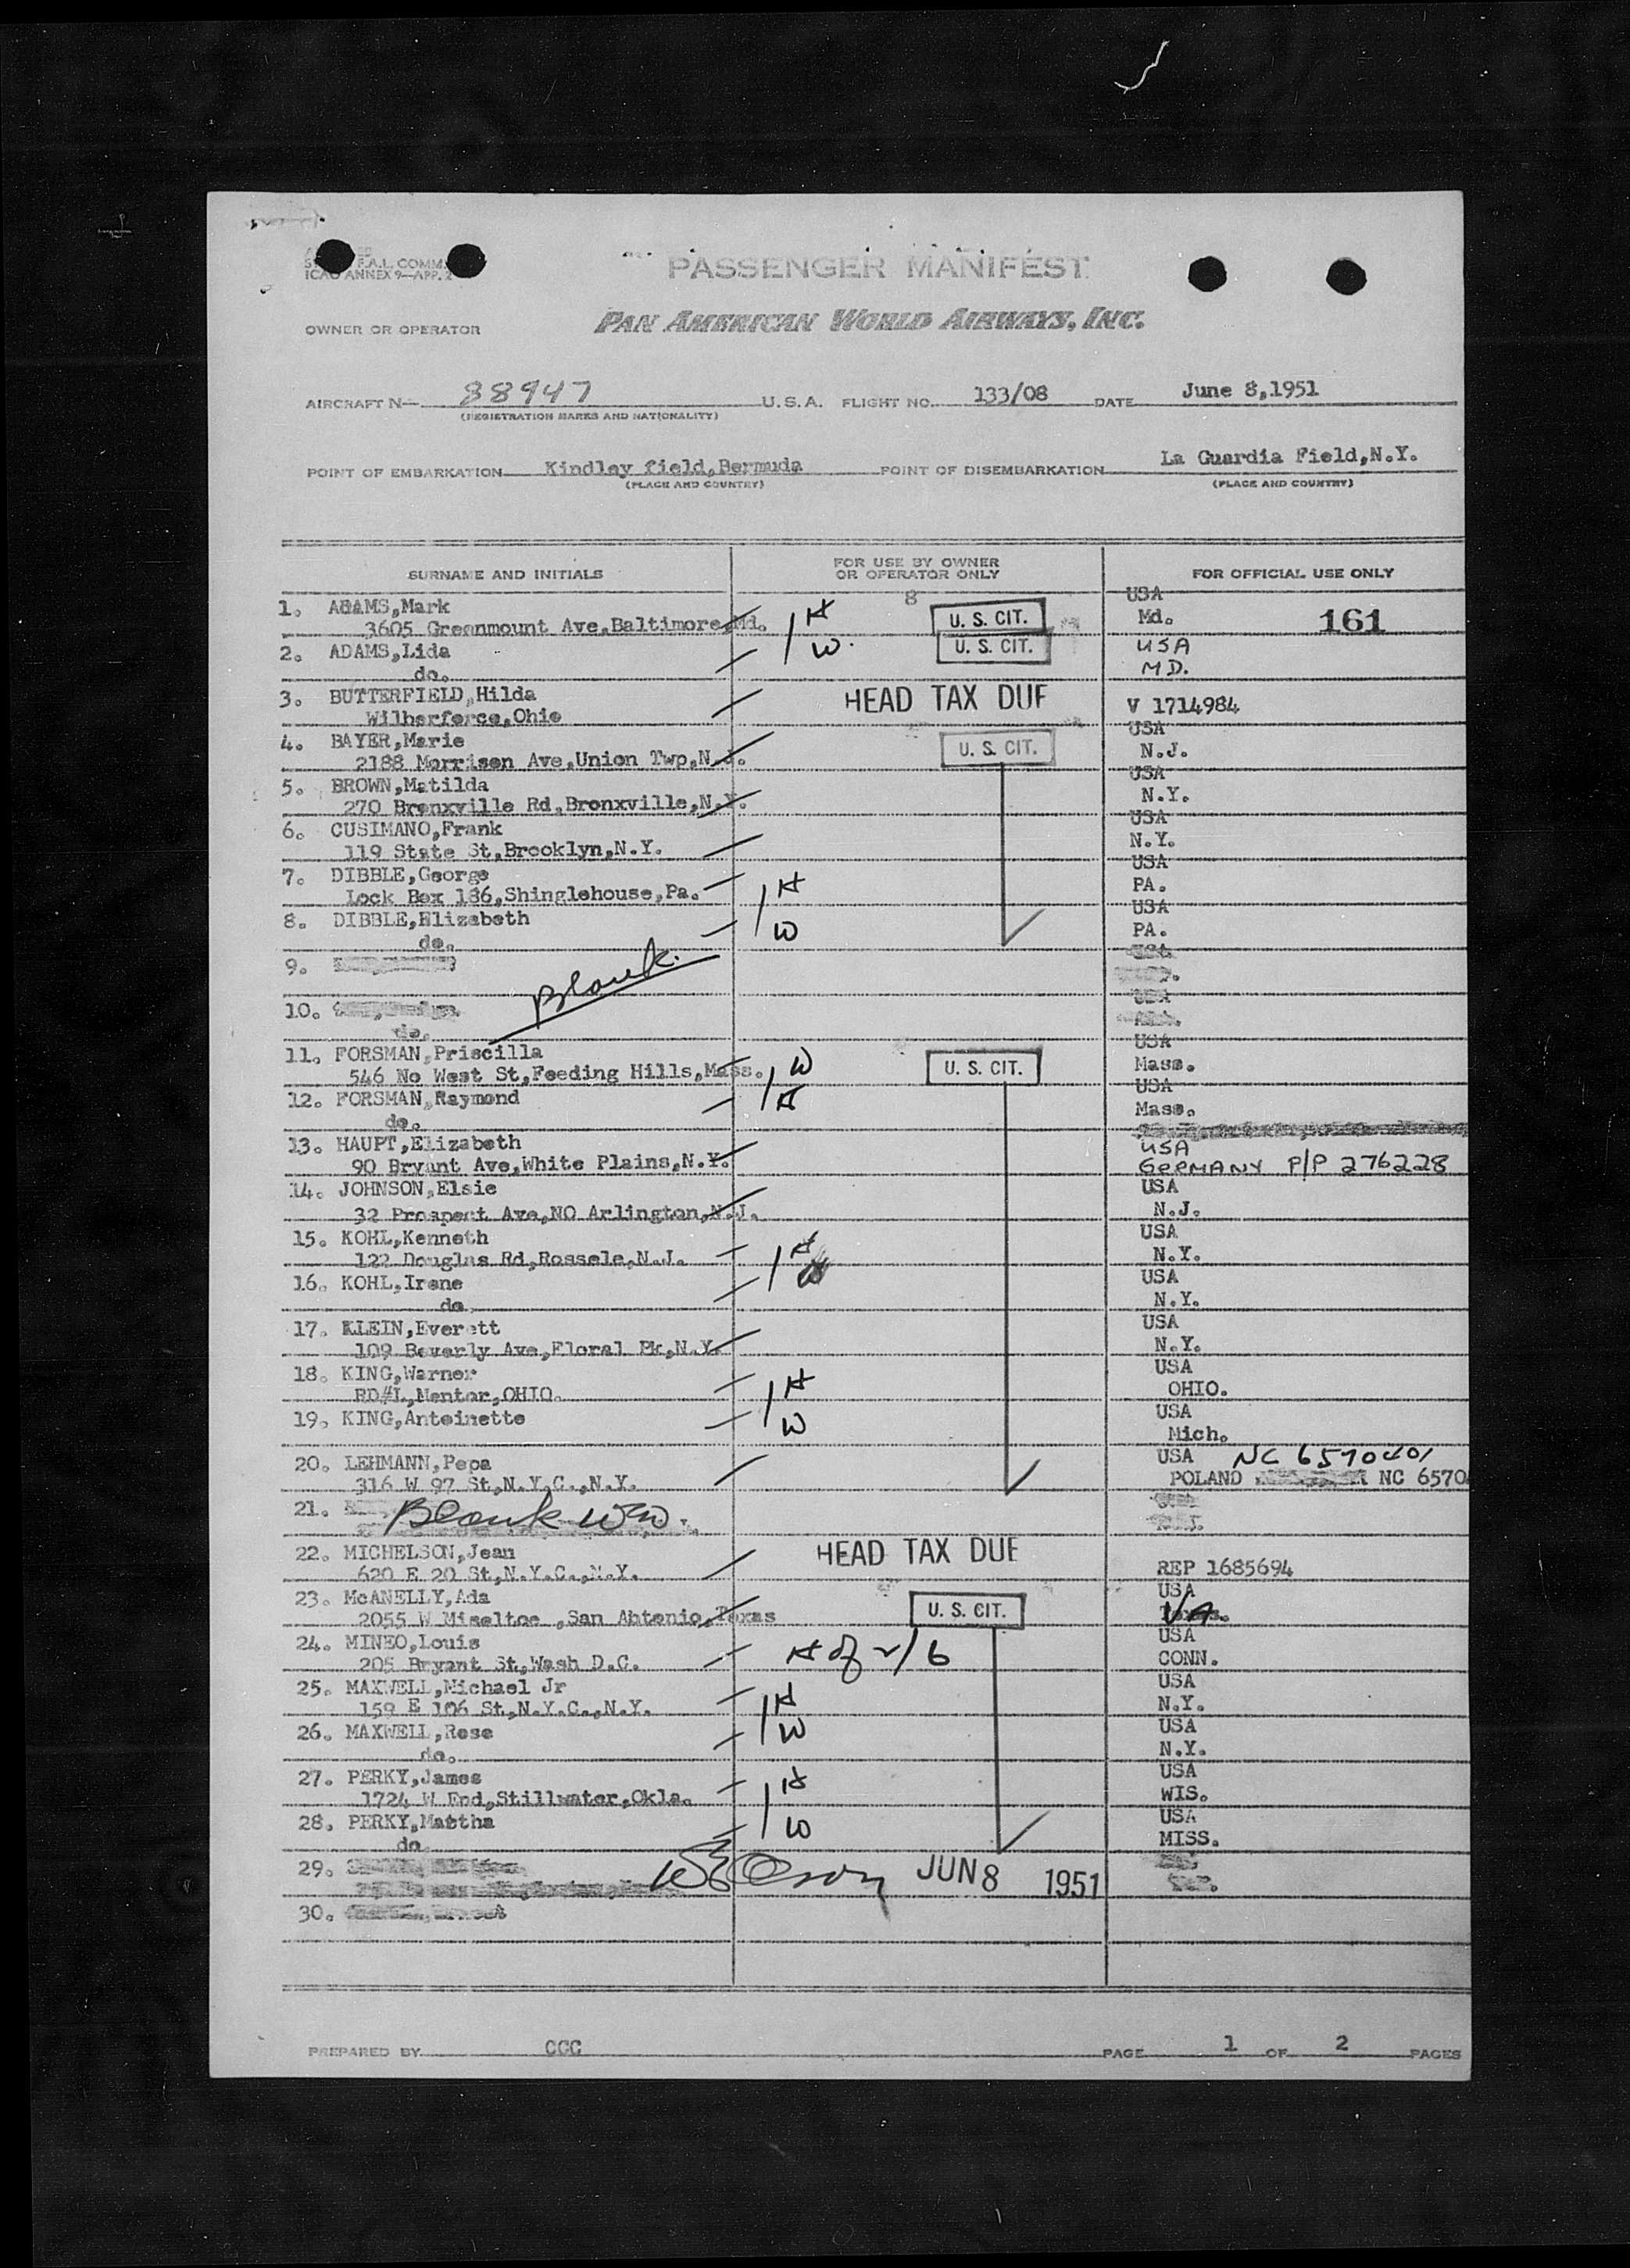 F.A.L. COMM.
ICAO ANNEX 9—APP. 2
PASSENGER MANIFEST
OWNER OR OPERATOR PAN AMERICAN WORLD AIRWAYS, INC.
AIRCRAFT N— 88947 U.S.A. FLIGHT NO. 133/08 DATE June 8,1951
(REGISTRATION MARKS AND NATIONALITY)
POINT OF EMBARKATION Kindley field,Bermuda POINT OF DISEMBARKATION La Guardia Field,N.Y.
(PLACE AND COUNTRY) (PLACE AND COUNTRY)
SURNAME AND INITIALS FOR USE BY OWNER OR OPERATOR ONLY FOR OFFICIAL USE ONLY
8 USA
1. ADAMS,Mark H U. S. CIT. Md. 161
3605 Greenmount Ave,Baltimore,Md.
2. ADAMS,Lida W. U. S. CIT. USA
do. MD.
3. BUTTERFIELD,Hilda HEAD TAX DUE V 1714984
Wilberforce,Ohio
USA
4. BAYER,Marie U. S. CIT. N.J.
2188 Morrison Ave,Union Twp,N.J.
USA
5. BROWN,Matilda N.Y.
270 Bronxville Rd,Bronxville,N.Y.
USA
6. CUSIMANO,Frank N.Y.
119 State St,Brooklyn,N.Y.
USA
7. DIBBLE,George H PA.
Lock Box 186,Shinglehouse,Pa.
USA
8. DIBBLE,Elizabeth W PA.
do.
9.
Blank.
10.
do.
USA
11. FORSMAN,Priscilla W U. S. CIT. Mass.
546 No West St,Feeding Hills,Mass.
USA
12. FORSMAN,Raymond H Mass.
do.
13. HAUPT,Elizabeth USA
90 Bryant Ave,White Plains,N.Y. GERMANY P/P 276228
14. JOHNSON,Elsie USA
32 Prospect Ave,NO Arlington,N.J. N.J.
15. KOHL,Kenneth H USA
122 Douglas Rd,Rossele,N.J. N.Y.
16. KOHL,Irene W USA
do. N.Y.
17. KLEIN,Everett USA
109 Beverly Ave,Floral Pk,N.Y. N.Y.
18. KING,Warner H USA
RD#1,Mentor,OHIO. OHIO.
19. KING,Antoinette W USA
Mich.
20. LEHMANN,Pepa USA NC 6570401
316 W 97 St,N.Y.C.,N.Y. POLAND NC 6570
21. Blank
22. MICHELSON,Jean HEAD TAX DUE
620 E 20 St,N.Y.C.,N.Y. REP 1685694
23. McANELLY,Ada U. S. CIT. USA
2055 W Miseltoe ,San Abtonio,Texas VA.
24. MINEO,Louis H of 2/6 USA
205 Bryant St,Wash D.C. CONN.
25. MAXWELL,Michael Jr H USA
159 E 106 St,N.Y.C.,N.Y. N.Y.
26. MAXWELL,Rose W USA
do. N.Y.
27. PERKY,James H USA
1724 W End,Stillwater,Okla. WIS.
28. PERKY,Mattha W USA
do. MISS.
29. JUN 8 1951
30.
PREPARED BY CCC PAGE 1 OF 2 PAGES